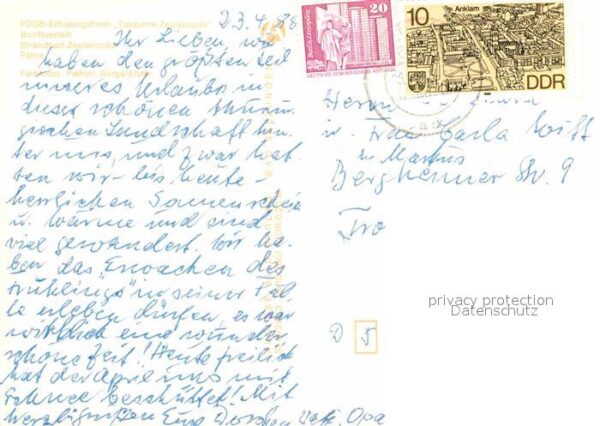 FDGB-Erholungsheim „Talsperre Zeulenroda"
Bootsverleih
Strandbad Zeulenroda
Fähre
Farbfotos: Piehler, Berga/Elster
23.4.88
Ihr Lieben, wir
haben den größten Teil
unseres Urlaubs in
dieser schönen thürin-
gischen Landschaft hin-
ter uns, und zwar hat-
ten wir - bis heute -
herrlichen Sonnenschein
u. Wärme und sind
viel gewandert. Wir ha-
ben das "Erwachen des
Frühlings" in seiner Fül-
le erleben dürfen, es war
wirklich eine wunder
schöne Zeit! Heute freilich
hat der April uns mit
Schnee beschüttet! Mit
herzl. Grüßen Eure Opa
20
DEUTSCHE DEMOKRATISCHE REPUBLIK
10
Anklam
DDR
Herrn
u. Frau Carla
u. Markus
Str. 9
D 5
privacy protection
Datenschutz